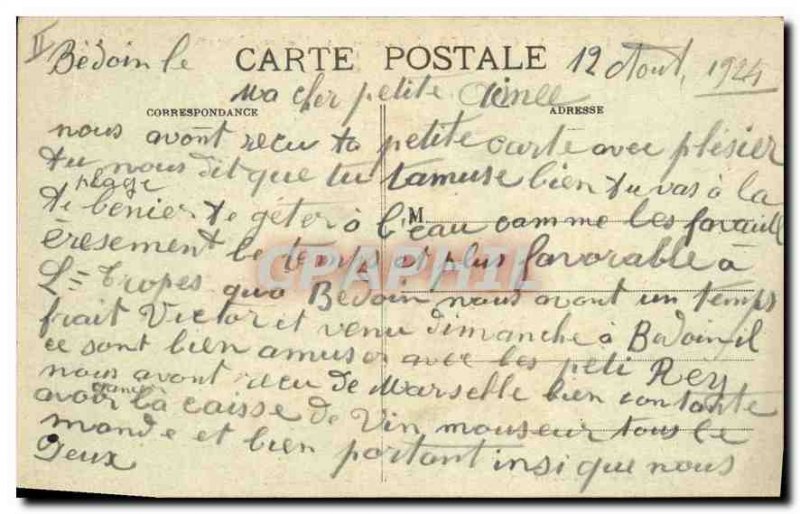 II
Bédoin le CARTE POSTALE 12 Aout, 1924
Ma cher petite Aimée
CORRESPONDANCE ADRESSE
nous avont recu ta petite carte avec plésier
tu nous dit que tu tamuse bien tu vas à la
plage
te bénier te géter à l'eau comme les
M
éresement le temps et plus favorable à
St Tropes quo Bédoin nous avont un temps
frait Victor it venu dimanche à Bedoin il
ce sont bien amuser avec les peti Rey
nous avont recu de Marselle bien contante
avoir la caisse de Vin mouseux tous le
mande et bien portant insi que nous
Jeux
CPAPHIL